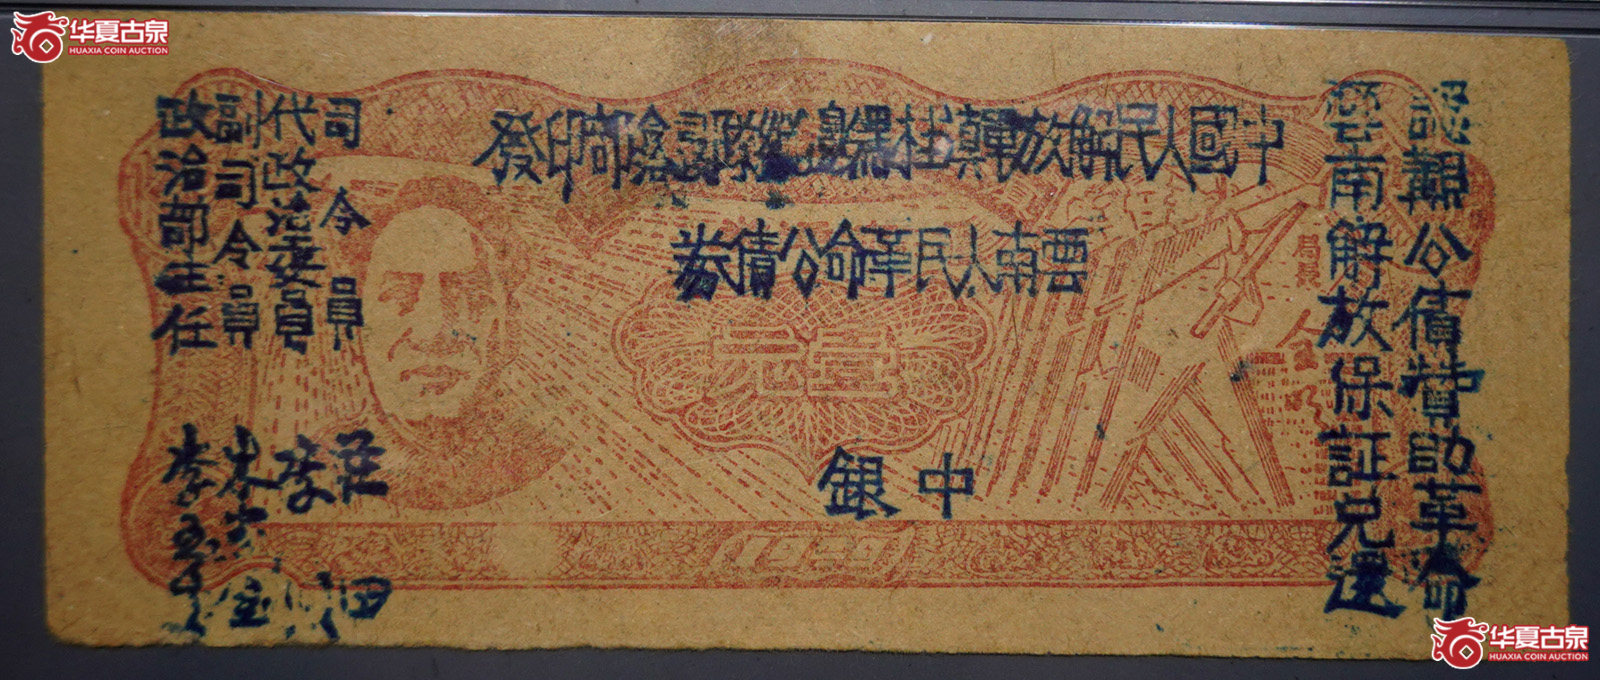 華夏古泉
HUAXIA COIN AUCTION
認購公債贊助革命
雲南解放保証兌還
中國人民解放軍滇桂黔邊縱隊部印發
雲南人民革命公債券
壹元
中銀
1949
司令員 莊田
代政治委員 李明
副司令員 朱家璧
政治部主任
局長
華夏古泉
HUAXIA COIN AUCTION